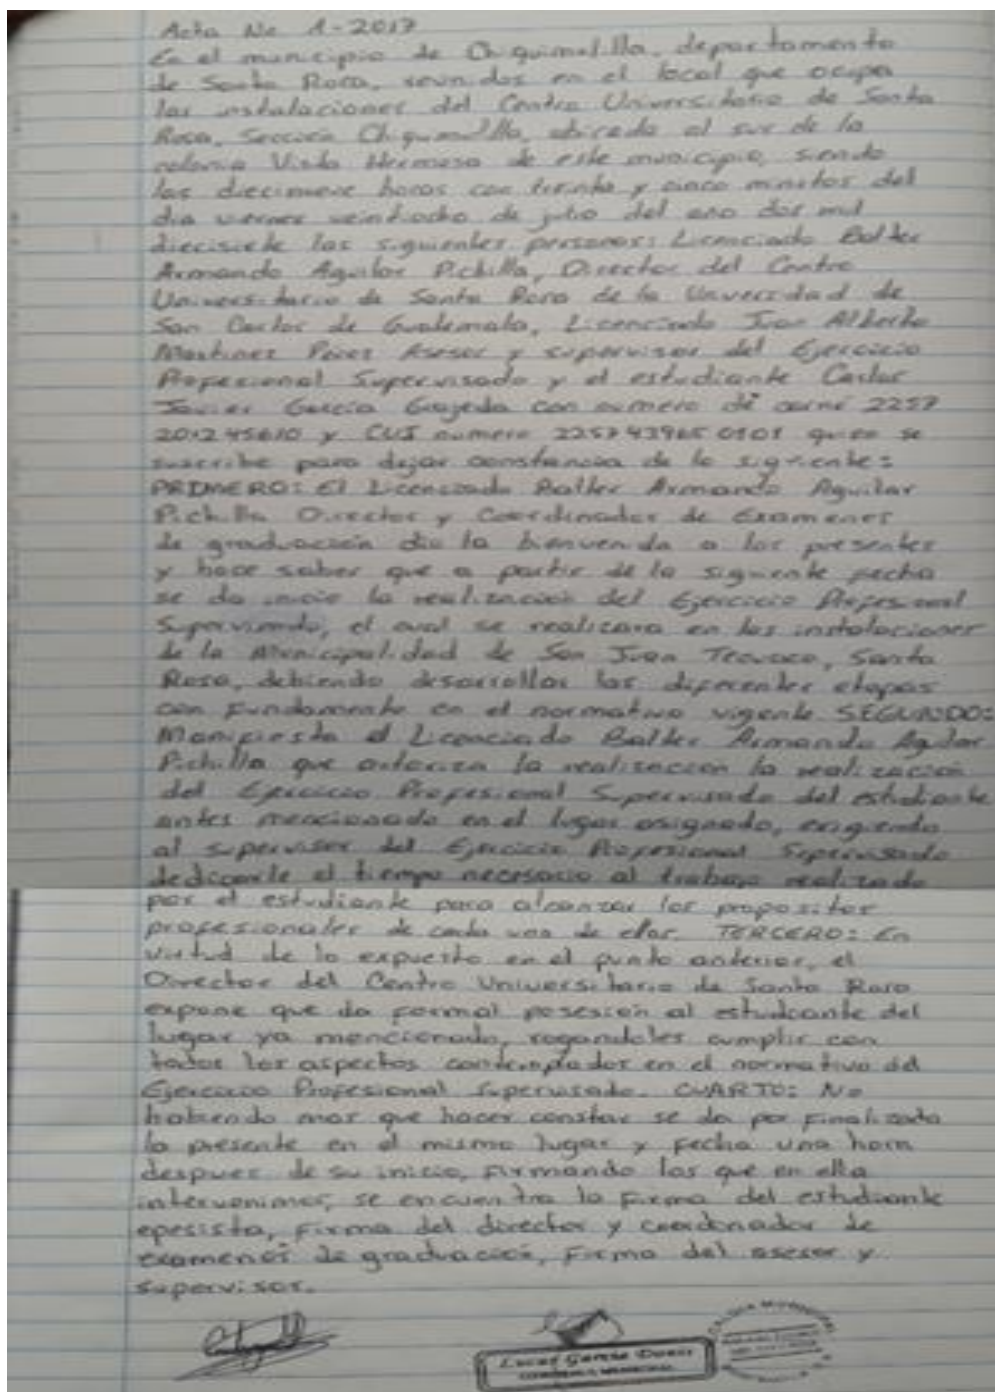 Acta No 1-2017
En el municipio de Chiquimulilla, departamento
de Santa Rosa, reunidos en el local que ocupa
las instalaciones del Centro Universitario de Santa
Rosa, Sección Chiquimulilla, ubicado al sur de la
colonia Vista Hermosa de este municipio, siendo
las diecinueve horas con treinta y cinco minutos del
dia viernes veintiocho de julio del ano dos mil
diecisiete las siguientes personas: Licenciado Balter
Armando Aguilar Pichilla, Director del Centro
Universitario de Santa Rosa de la Unversidad de
San Carlos de Guatemala, Licenciado Juan Alberto
Martinez Perez Asesor y supervisor del Ejercicio
Profesional Supervisado y el estudiante Carlos
Javier Garcia Grajeda con numero de carné 2257
201245610 y CUI numero 2257 43965 0101 quien se
suscribe para dejar constancia de lo siguiente:
PRIMERO: El Licenciado Balter Armando Aguilar
Pichilla Director y Coordinador de Examenes
de graduación dio la bienvenida a los presentes
y hace saber que a partir de la siguiente fecha
se da inicio la realización del Ejercicio Profesional
Supervisado, el cual se realizara en las instalaciones
de la Municipalidad de San Juan Tecuaco, Santa
Rosa, debiendo desarrollar las diferentes etapas
con fundamento en el normativo vigente SEGUNDO:
Manifiesta el Licenciado Balter Armando Aguilar
Pichilla que autoriza la realizaccion la realización
del Ejercicio Profesional Supervisado del estudiante
antes mencionado en el lugar asignado, exigiendo
al supervisor del Ejercicio Profesional Supervisado
dedicarle el tiempo necesario al trabajo realizado
por el estudiante para alcanzar los propositos
profesionales de cada uno de ellos. TERCERO: En
virtud de lo expuesto en el punto anterior, el
Director del Centro Universitario de Santa Rosa
expone que da formal posesión al estudiante del
lugar ya mencionado, rogandoles cumplir con
todos los aspectos contemplados en el normativo del
Ejercicio Profesional Supervisado. CUARTO: No
habiendo mas que hacer constar se da por finalizada
la presente en el mismo lugar y fecha una hora
despues de su inicio, firmando los que en ella
intervenimos, se encuentra la firma del estudiante
epesista, firma del director y coordonador de
examenes de graduación, firma del asesor y
supervisor.
Lucas García
MUNICIPAL